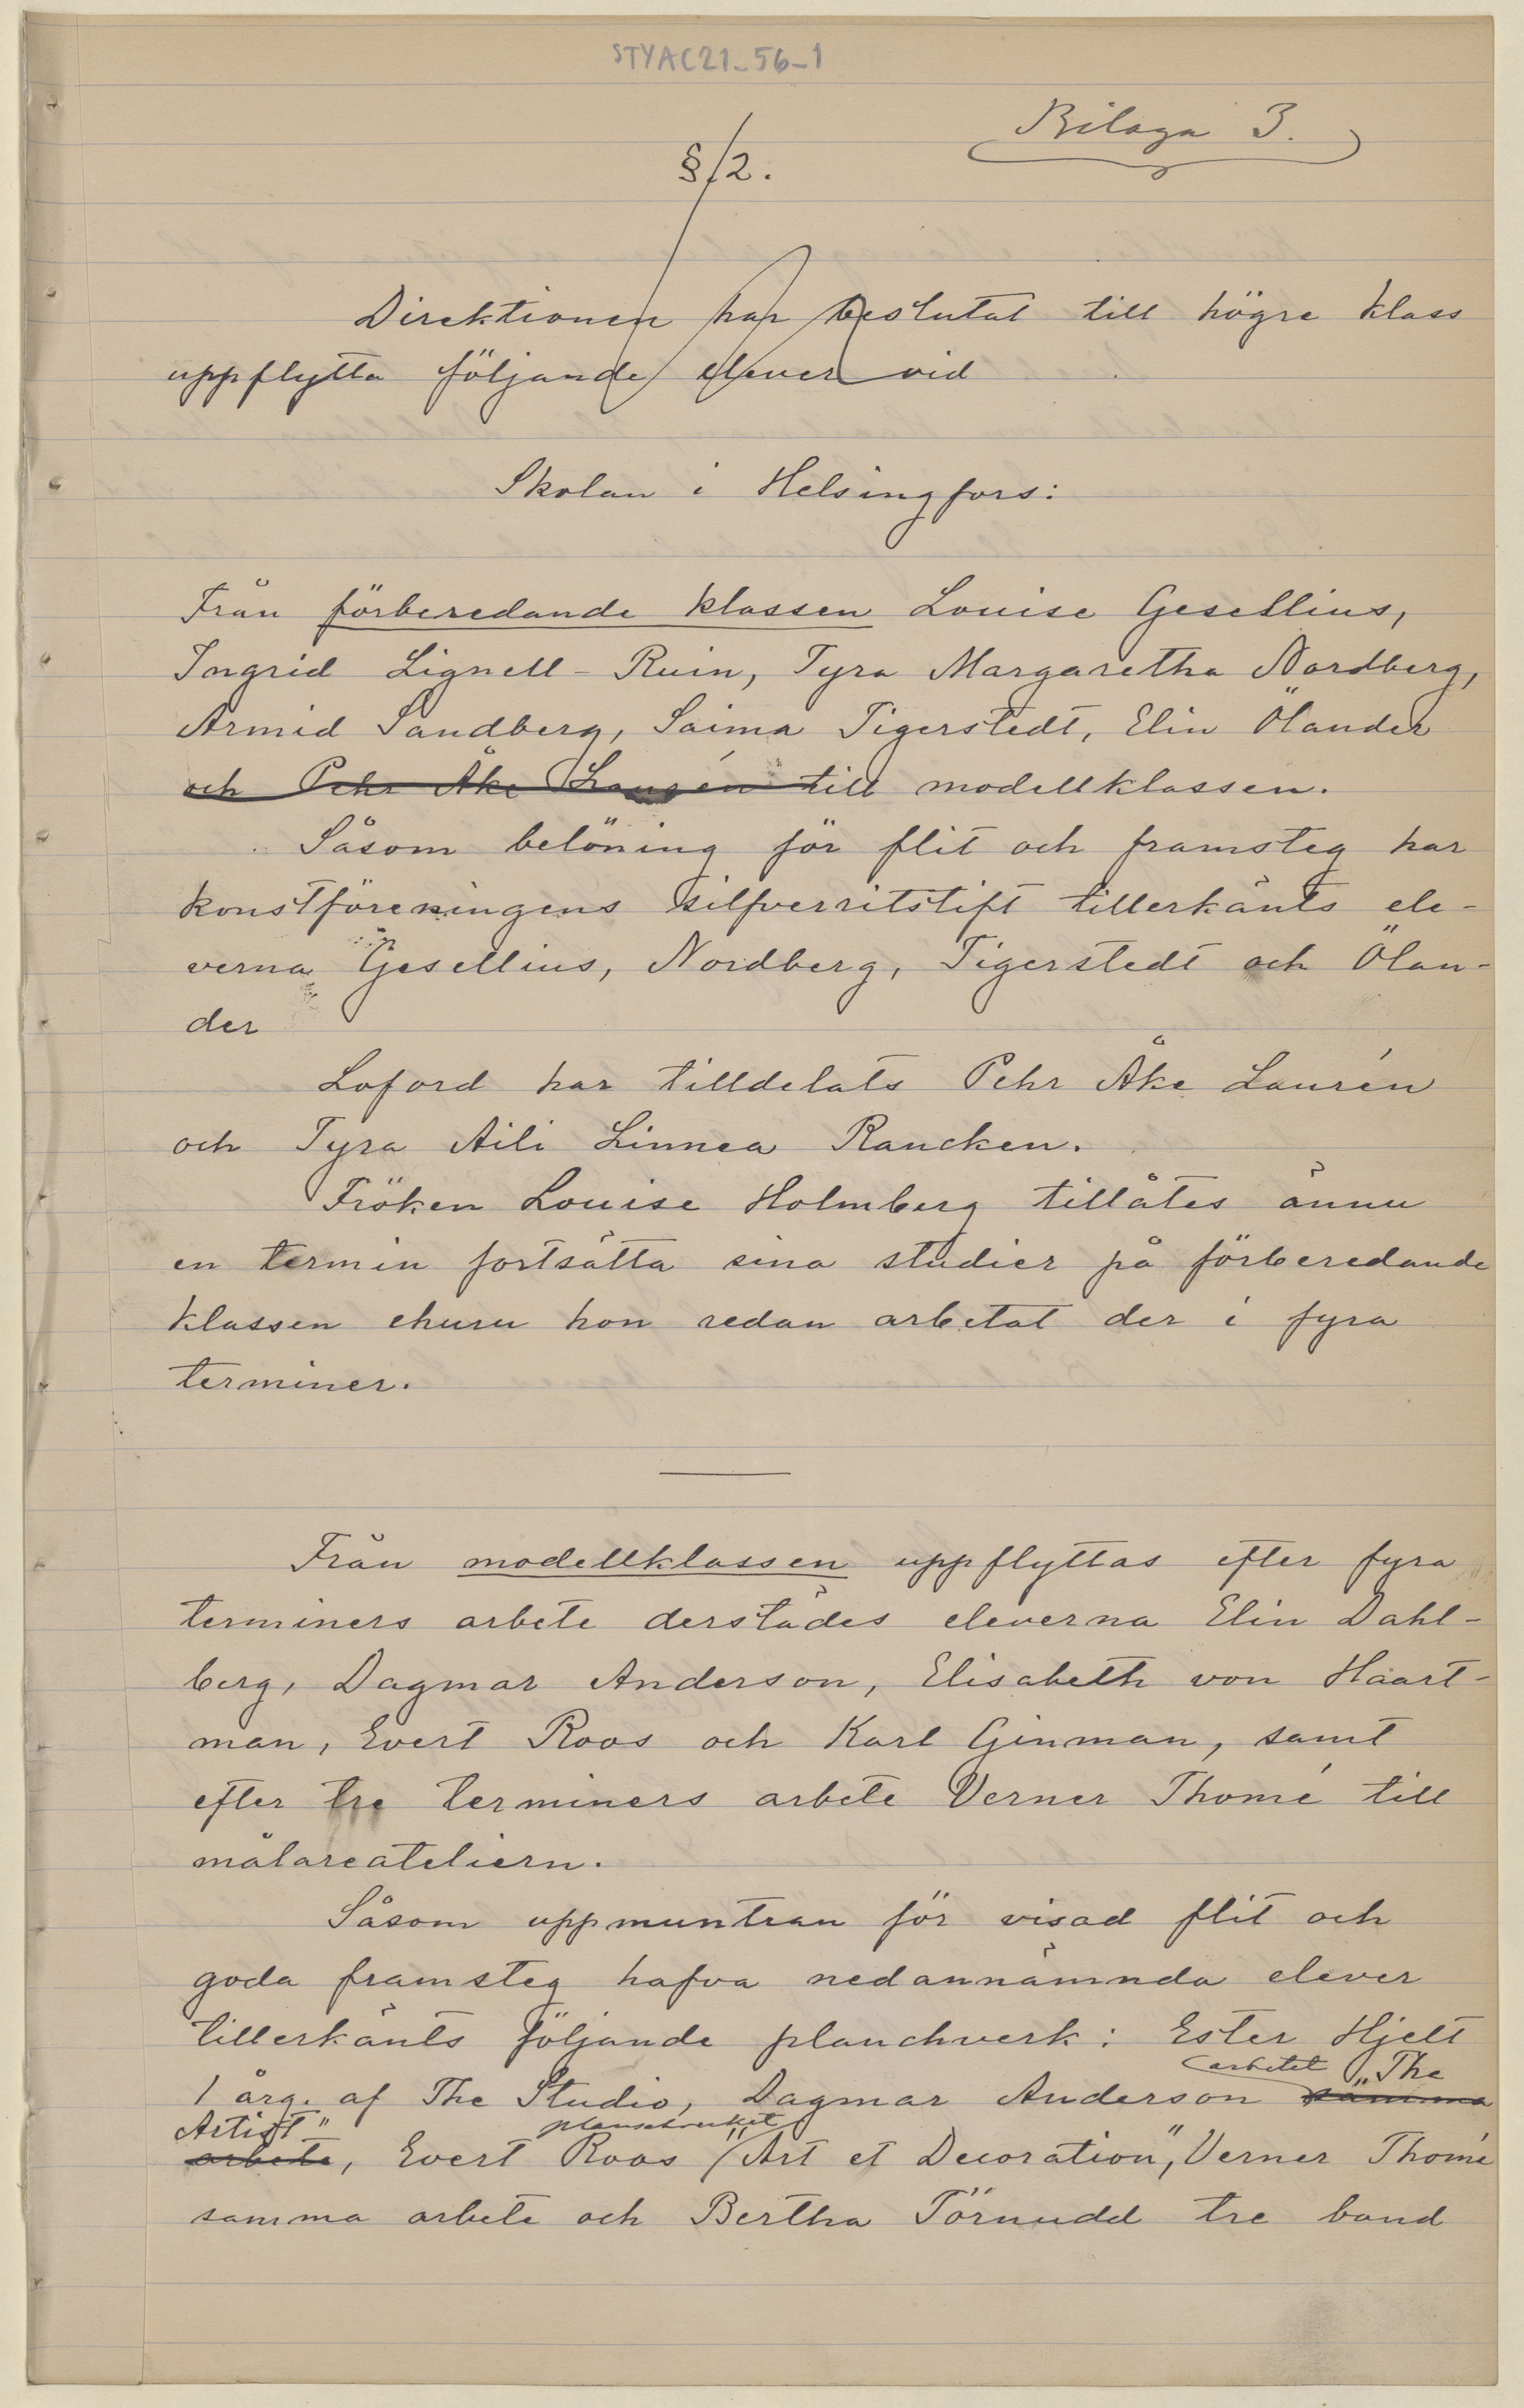 STYAC21_56_1
Bilaga 3.
§ 2.
Direktionen har beslutat till högre klass
uppflytta följande elever vid
Skolan i Helsingfors:
Från förberedande klassen Louise Gesellius,
Ingrid Lignell-Ruin, Tyra Margaretha Nordberg,
Armid Sandberg, Saima Tigerstedt, Elin Ölander
och Pehr Åke Laurén till modellklassen.
Såsom belöning för flit och framsteg har
konstföreningens silfverritstift tillerkänts ele-
verna Gesellius, Nordberg, Tigerstedt och Ölan-
der
Loford har tilldelats Pehr Åke Laurén
och Tyra Aili Linnea Rancken.
Fröken Louise Holmberg tillåtes ännu
en termin fortsätta sina studier på förberedande
klassen ehuru hon redan arbetat der i fyra
terminer.
Från modellklassen uppflyttas efter fyra
terminers arbete derstädes eleverna Elin Dahl-
berg, Dagmar Anderson, Elisabeth von Haart-
man, Evert Roos och Karl Ginman, samt
efter tre terminers arbete Verner Thomé till
målareateliern.
Såsom uppmuntran för visad flit och
goda framsteg hafva nedannämnda elever
tillerkänts följande planchverk: Ester Hjelt
arbetet „The
1 årg. af The Studio, Dagmar Anderson samma
Artist" planschverket
arbete, Evert Roos "Art et Decoration", Verner Thomé
samma arbete och Bertha Törnudd tre band